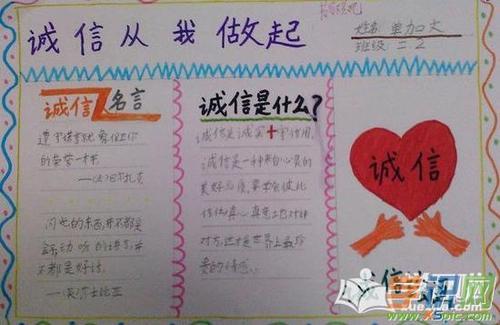 诚信从我做起
姓名 单加文
班级 二.2
诚信名言
遵守诺言就像保卫你
的荣誉一样
——(法)巴尔扎克
闪光的东西并不都是
金子动听的语言并
不都是好话。
——莎士比亚
诚信是什么?
诚信是诚实+守信用,
诚信是一种来自心灵的
美好品质,
对方这才是世界上最珍
贵的情感。
诚信
学习网